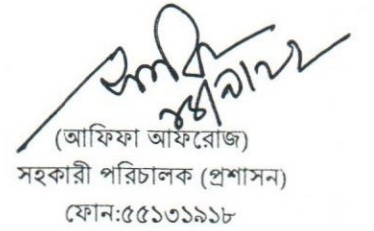 (আফিফা আফরোজ)
সহকারী পরিচালক (প্রশাসন)
ফোন:৫৫১৩১৯১৮